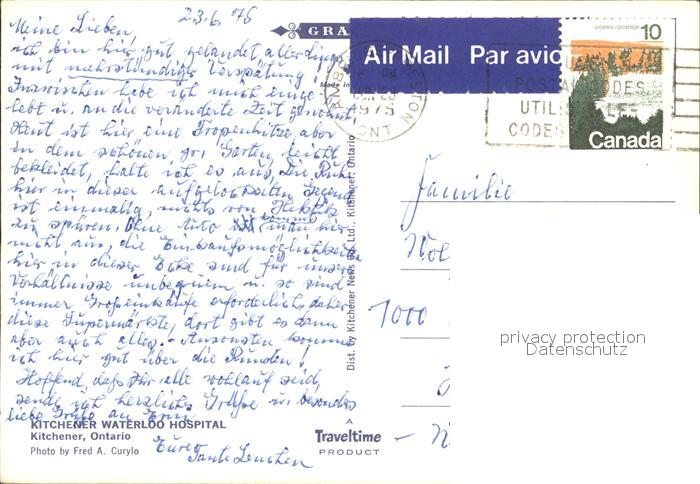 23.6.75
Meine Lieben,
ich bin hier gut gelandet allerdings
mit mehrstündiger Verspätung!
Inzwischen habe ich mich einge-
lebt u. an die veränderte Zeit gewöhnt.
Heut ist hier eine Tropenhitze, aber
in dem schönen gr. Garten, leicht
bekleidet, halte ich es aus. Die Ruhe
hier in dieser aufgelockerten Gegend
ist einmalig, nichts von Hektik
zu spüren. Ohne Auto kommt man hier
nicht aus, die Einkaufsmöglichkeiten
hier in dieser Ecke sind für unsere
Verhältnisse unbequem u. so sind
immer Großeinkäufe erforderlich, daher
diese Supermärkte, dort gibt es dann
aber auch alles. - Ansonsten komme
ich hier gut über die Runden!
Hoffend, daß Ihr alle wohlauf seid,
sende ich herzliche Grüße u. besonders
liebe Grüße an
Eure
Tante Lenchen
KITCHENER WATERLOO HOSPITAL
Kitchener, Ontario
Photo by Fred A. Curylo
GRA
Made in
Dist. by Kitchener News Co. Ltd., Kitchener, Ontario
A
Traveltime
PRODUCT
Air Mail Par avion
1975
ONT
POSTAL CODES
UTIL
CODES
postes/postage
10
Canada
Familie
1000
privacy protection
Datenschutz